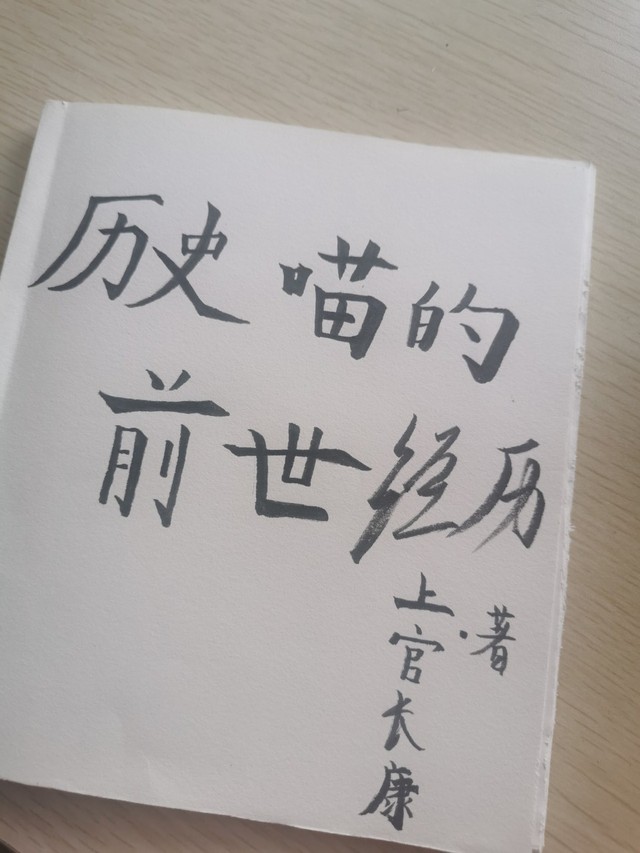 历史喵的
前世经历
上官长康
·著